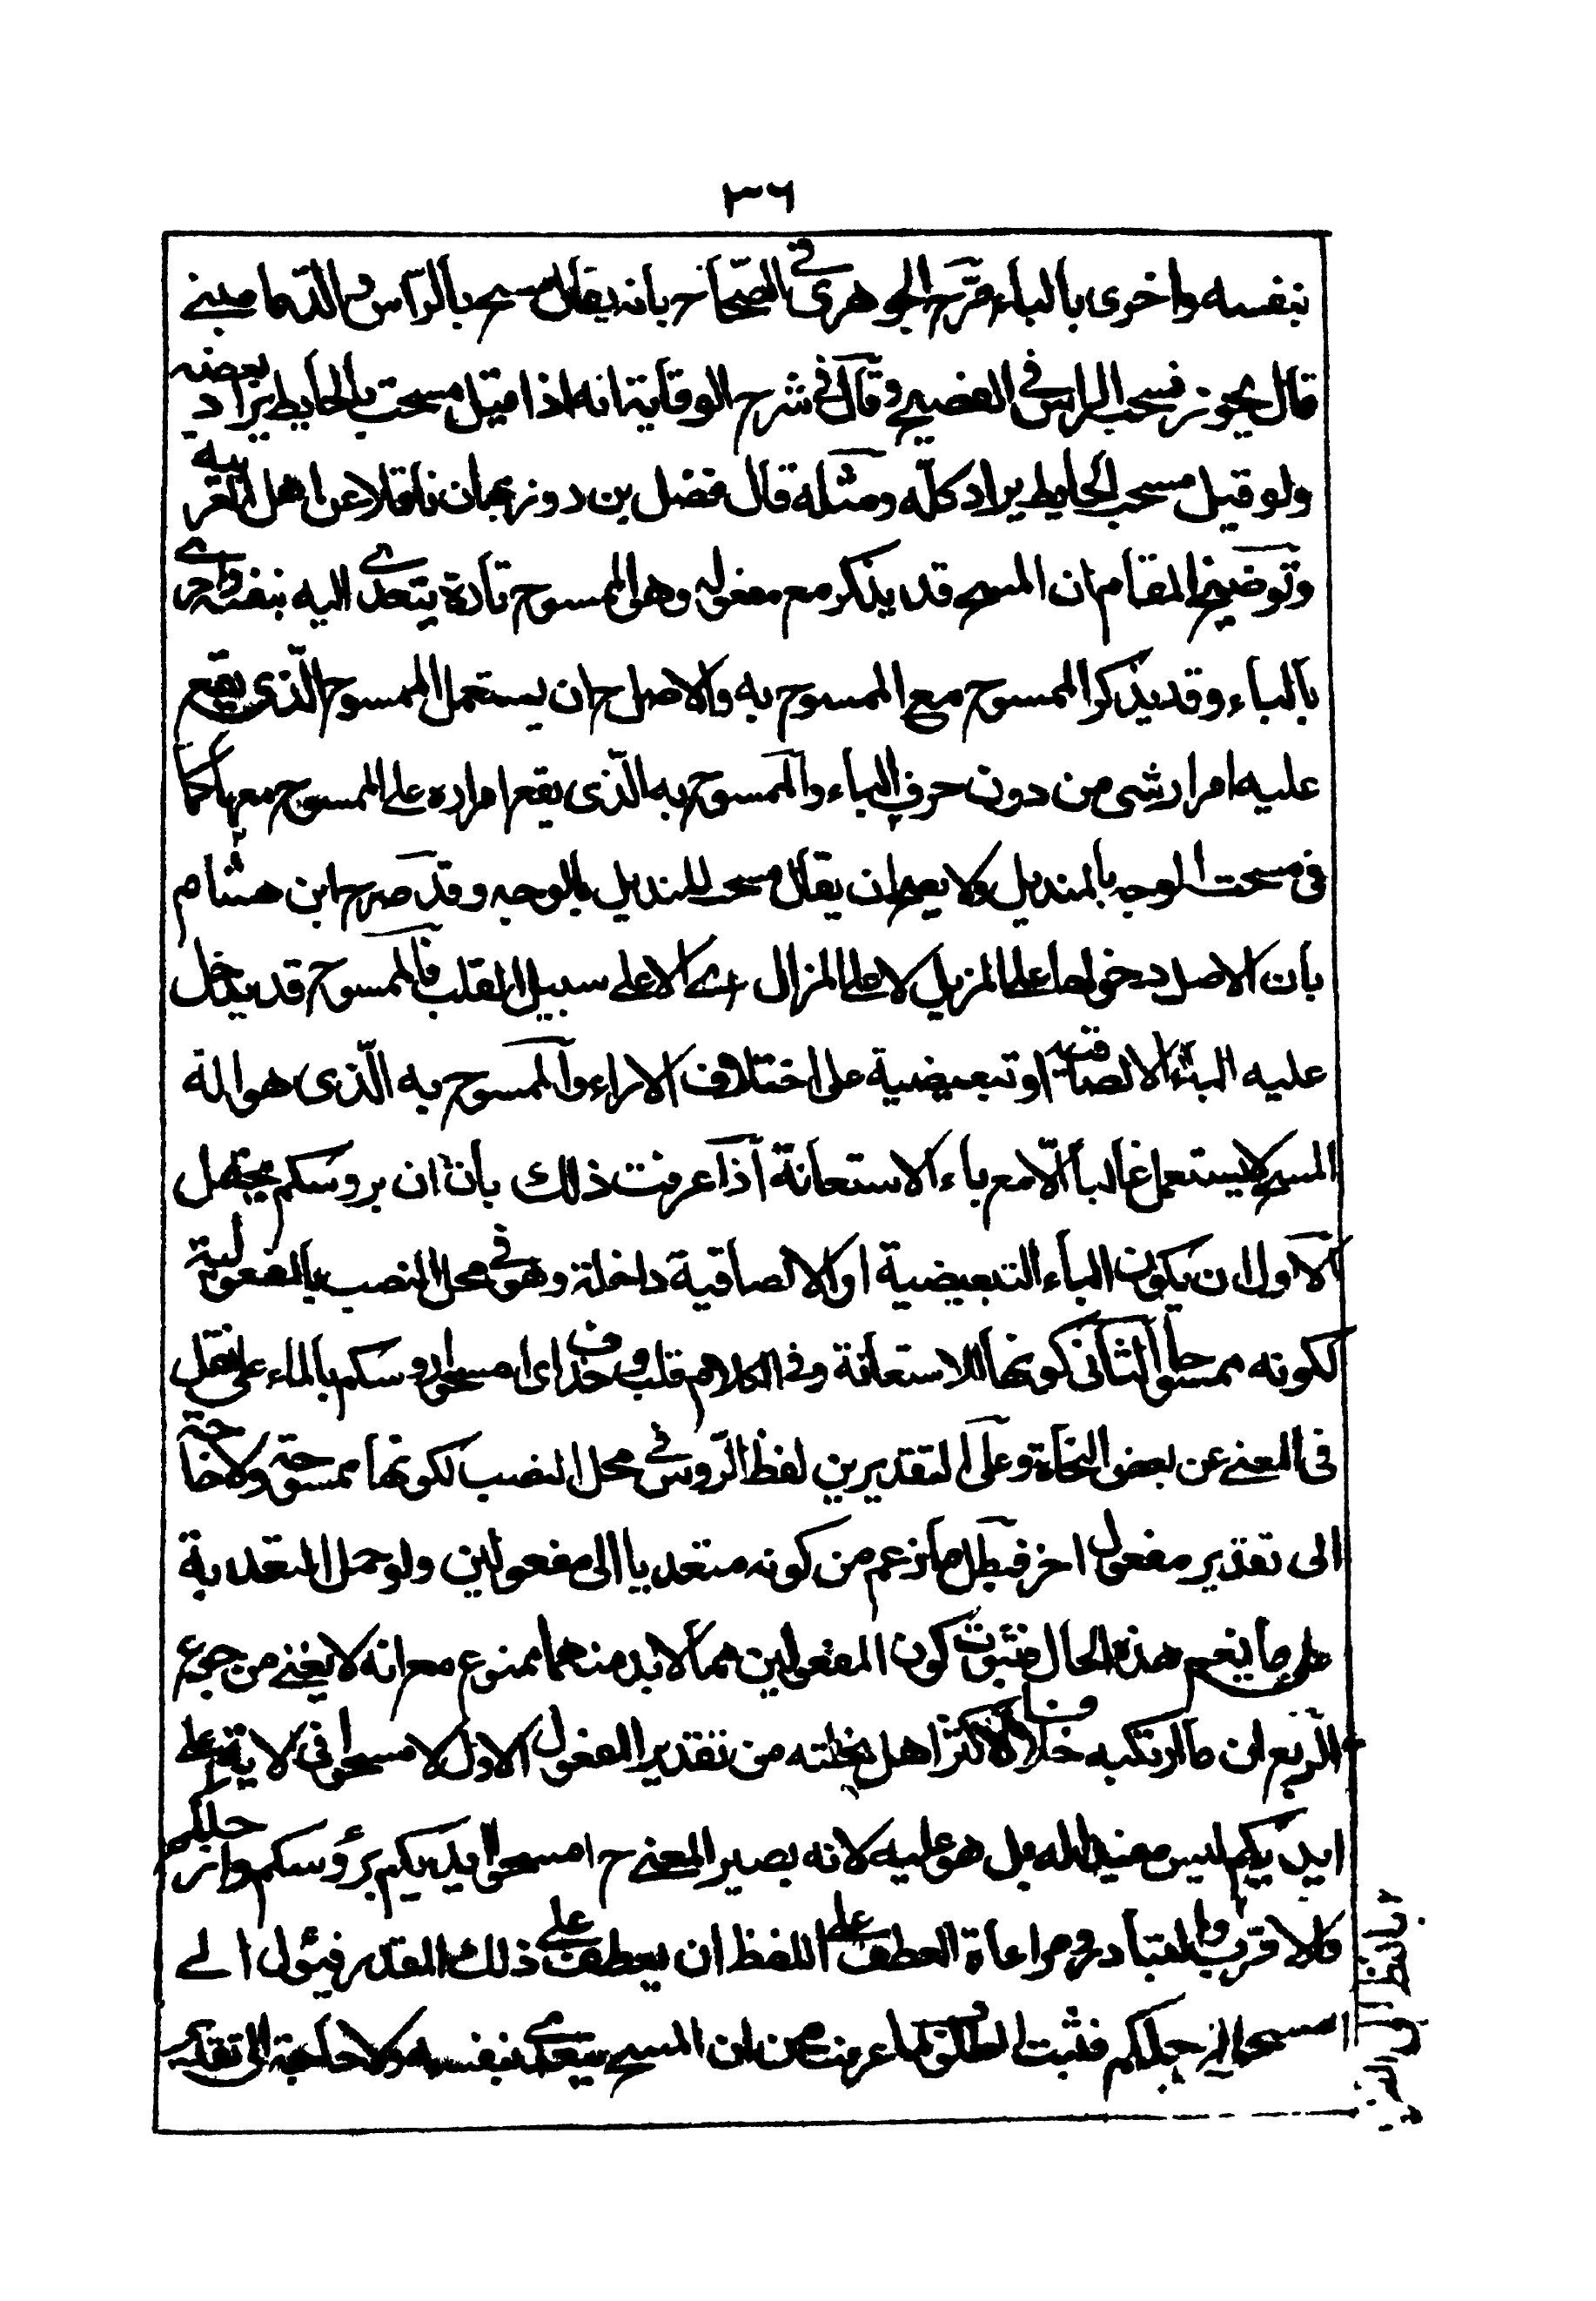 ٣٦
بنفسه واخرى بالباء صرّح الجوهرى فى الصّحاح بانه يقال مسح بالرّاس والدّمامينے
قال يجوز مسحت الراس فى الفصيح وقال فى شرح الوقاية انه اذا قيل مسحت بالحايط يراد بعضه
ولو قيل مسحت الحايط يراد كلّه ومثله قال فضل بن دوزبهان ناقلا عن اهل العربية
وتوضيح المقام ان المسح قد يذكر مع مفعوله وهو الممسوح تارة يتعدے اليه بنفسه واخرے
بالباء وقد يذكر الممسوح مع الممسوح به والاصل ح ان يستعمل الممسوح الّذى يقع
عليه امرار شى من دون حرف الباء والممسوح به الّذى يقع امراره على الممسوح معها كما
فى مسحت الوجه بالمنديل ولا يصح ان يقال مسحت المنديل بالوجه وقد صرح ابن هشام
بان الاصل دخولها على المزيل لا على المزال عنه الا على سبيل القلب فالممسوح قد يدخل
عليه الباء الالصاقية او تبعيضية على اختلاف الاراء والممسوح به الّذى هو الة
المسح لا يستعمل غالبا الّا مع باء الاستعانة اذا عرفت ذلك بان ان بروسكم يحتمل
الاول ان يكون الباء التبعيضية او الالصاقية داخلة وهو فى محل النصب بالمفعولية
لكونه ممسوحا الثانى كونها للاستعانة وفى الكلام قلب وحذف اى امسحوا روسكم بالماء على نقل
فى المعنے عن بعض النحاة وعلى التقديرين لفظ الرّوس فى محل النصب لكونها ممسوحة ولا حاجة
الى تقدير مفعول اخر فبطل ما زعم من كونه متعديا الى مفعولين ولو حمل التعدية
على ما يعم هذه الحال فثبوت كون المفعولين مما لا بد منهما ممنوع مع انه لا يغنے من جوع
الرّبع ان ما ارتكبه خلافا لاكثر اهل نحلته من تقدير المفعول الاول لامسحوا فى لاية على
ايديكم ليس مفيدا له بل هو عليه لانه يصير المعنے ح امسحوا ايديكم برؤسكم وارجلكم
والاقرب والمتبادر ومراعاة العطف على اللفظ ان يعطف على ذلك المقدر فيؤل الے
امسحوا ارجلكم فثبت المطلوب لما عرفت من ان المسح يتعدى بنفسه ولا حاجة الى تقدير